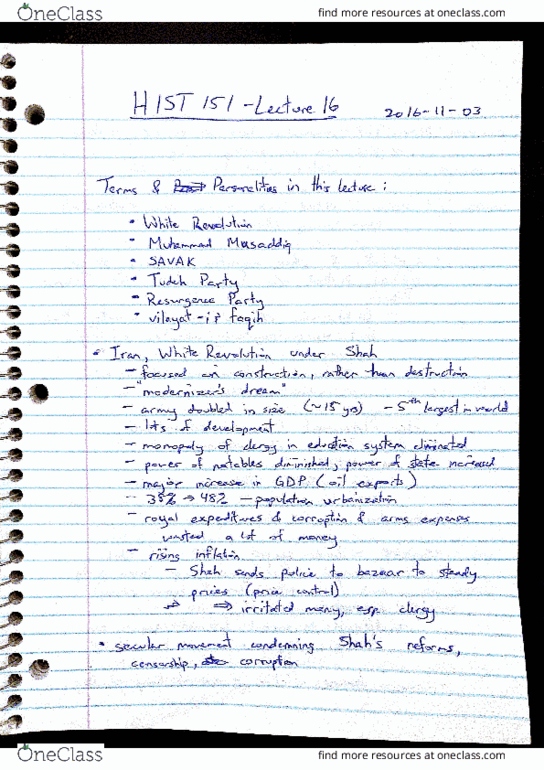 OneClass
find more resources at oneclass.com
HIST 151 - Lecture 16
2016-11-03
Terms & Personalities in this lecture:
• White Revolution
• Muhammad Musaddiq
• SAVAK
• Tudeh Party
• Resurgence Party
• vilayat-i faqih
• Iran, White Revolution under Shah
– focused on construction, rather than destruction
– "modernizer's dream"
– army doubled in size (~15 yrs) – 5th largest in world
– lots of development
– monopoly of clergy in education system eliminated
– power of notables diminished, power of state increased
– major increase in GDP (oil exports)
– 38% → 48% – population urbanization
– royal expenditures & corruption & arms expenses
wasted a lot of money
– rising inflation
– Shah sends police to bazaar to steady
prices (price control)
⇒ irritated many, esp. clergy
• secular movement condemning Shah's reforms,
censorship, corruption
OneClass
find more resources at oneclass.com